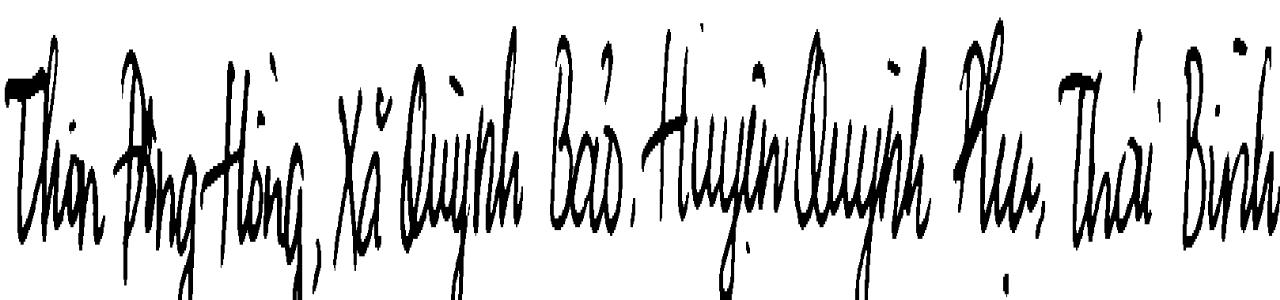 Thôn Đông Hồng, Xã Quỳnh Bảo, Huyện Quỳnh Phụ, Thái Bình